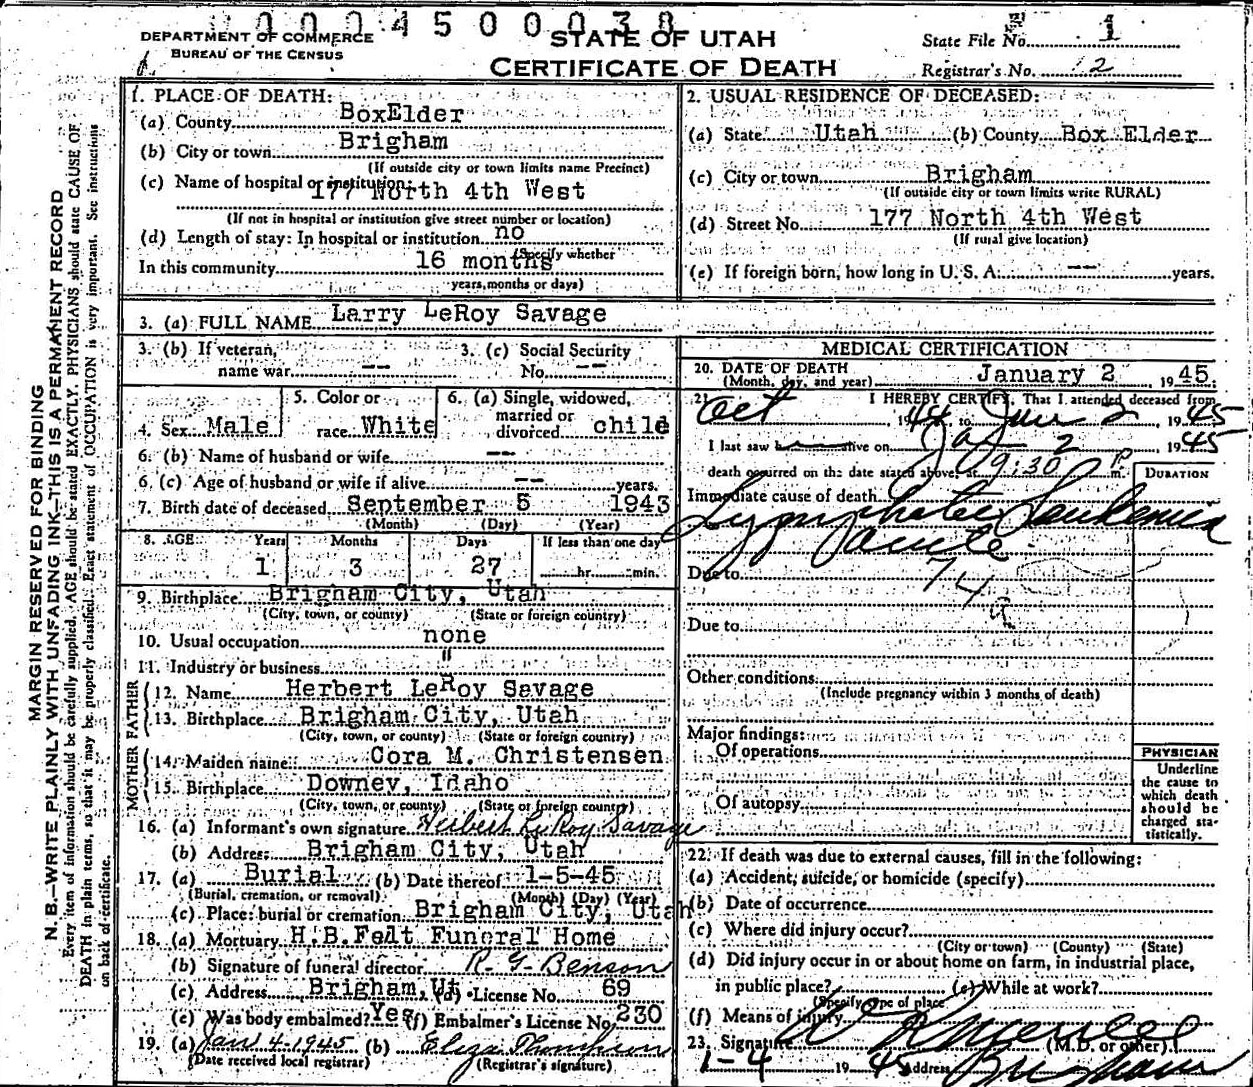 0 0 0 4 5 0 0 0 3 8
DEPARTMENT OF COMMERCE
BUREAU OF THE CENSUS
STATE OF UTAH
CERTIFICATE OF DEATH
State File No. 1
Registrar's No. 2
MARGIN RESERVED FOR BINDING
N. B.—WRITE PLAINLY WITH UNFADING INK—THIS IS A PERMANENT RECORD
Every item of information should be carefully supplied. AGE should be stated EXACTLY. PHYSICIANS should state CAUSE OF
DEATH in plain terms, so that it may be properly classified. Exact statement of OCCUPATION is very important. See instructions
on back of certificate.
1. PLACE OF DEATH:
(a) County BoxElder
(b) City or town Brigham
(If outside city or town limits name Precinct)
(c) Name of hospital or institution:
177 North 4th West
(If not in hospital or institution give street number or location)
(d) Length of stay: In hospital or institution no
(Specify whether
In this community 16 months
years, months or days)
2. USUAL RESIDENCE OF DECEASED:
(a) State Utah (b) County Box Elder
(c) City or town Brigham
(If outside city or town limits write RURAL)
(d) Street No. 177 North 4th West
(If rural give location)
(e) If foreign born, how long in U. S. A. -- years.
3. (a) FULL NAME Larry LeRoy Savage
3. (b) If veteran, name war --
3. (c) Social Security No. --
4. Sex Male
5. Color or race White
6. (a) Single, widowed, married or divorced child
6. (b) Name of husband or wife --
6. (c) Age of husband or wife if alive -- years.
7. Birth date of deceased September 5 1943
(Month) (Day) (Year)
8. AGE Years Months Days If less than one day
1 3 27 hr. min.
9. Birthplace Brigham City, Utah
(City, town, or county) (State or foreign country)
10. Usual occupation none
11. Industry or business "
FATHER
12. Name Herbert LeRoy Savage
13. Birthplace Brigham City, Utah
(City, town, or county) (State or foreign country)
MOTHER
14. Maiden name Cora M. Christensen
15. Birthplace Downey, Idaho
(City, town, or county) (State or foreign country)
16. (a) Informant's own signature Herbert LeRoy Savage
(b) Address Brigham City, Utah
17. (a) Burial (b) Date thereof 1-5-45
(Burial, cremation, or removal) (Month) (Day) (Year)
(c) Place: burial or cremation Brigham City, Utah
18. (a) Mortuary H.B.Felt Funeral Home
(b) Signature of funeral director R. G. Benson
(c) Address Brigham, Ut (d) License No. 69
(e) Was body embalmed? Yes (f) Embalmer's License No. 230
19. (a) Jan 4-1945 (b) Eliza Thompson
(Date received local registrar) (Registrar's signature)
MEDICAL CERTIFICATION
20. DATE OF DEATH
(Month, day, and year) January 2, 1945.
21. I HEREBY CERTIFY, That I attended deceased from
Oct 1944 to Jan 2, 1945
I last saw h alive on Jan 2 1945
death occurred on the date stated above, at 9:30 P m.
DURATION
Immediate cause of death
Lymphatic Leukemia
acute
Due to
74 a
Due to
Other conditions
(Include pregnancy within 3 months of death)
Major findings:
Of operations
Of autopsy
PHYSICIAN
Underline
the cause to
which death
should be
charged sta-
tistically.
22. If death was due to external causes, fill in the following:
(a) Accident, suicide, or homicide (specify)
(b) Date of occurrence
(c) Where did injury occur?
(City or town) (County) (State)
(d) Did injury occur in or about home on farm, in industrial place,
in public place? (e) While at work?
(Specify type of place)
(f) Means of injury
23. Signature (M.D. or other)
1-4 1945 Address Brigham